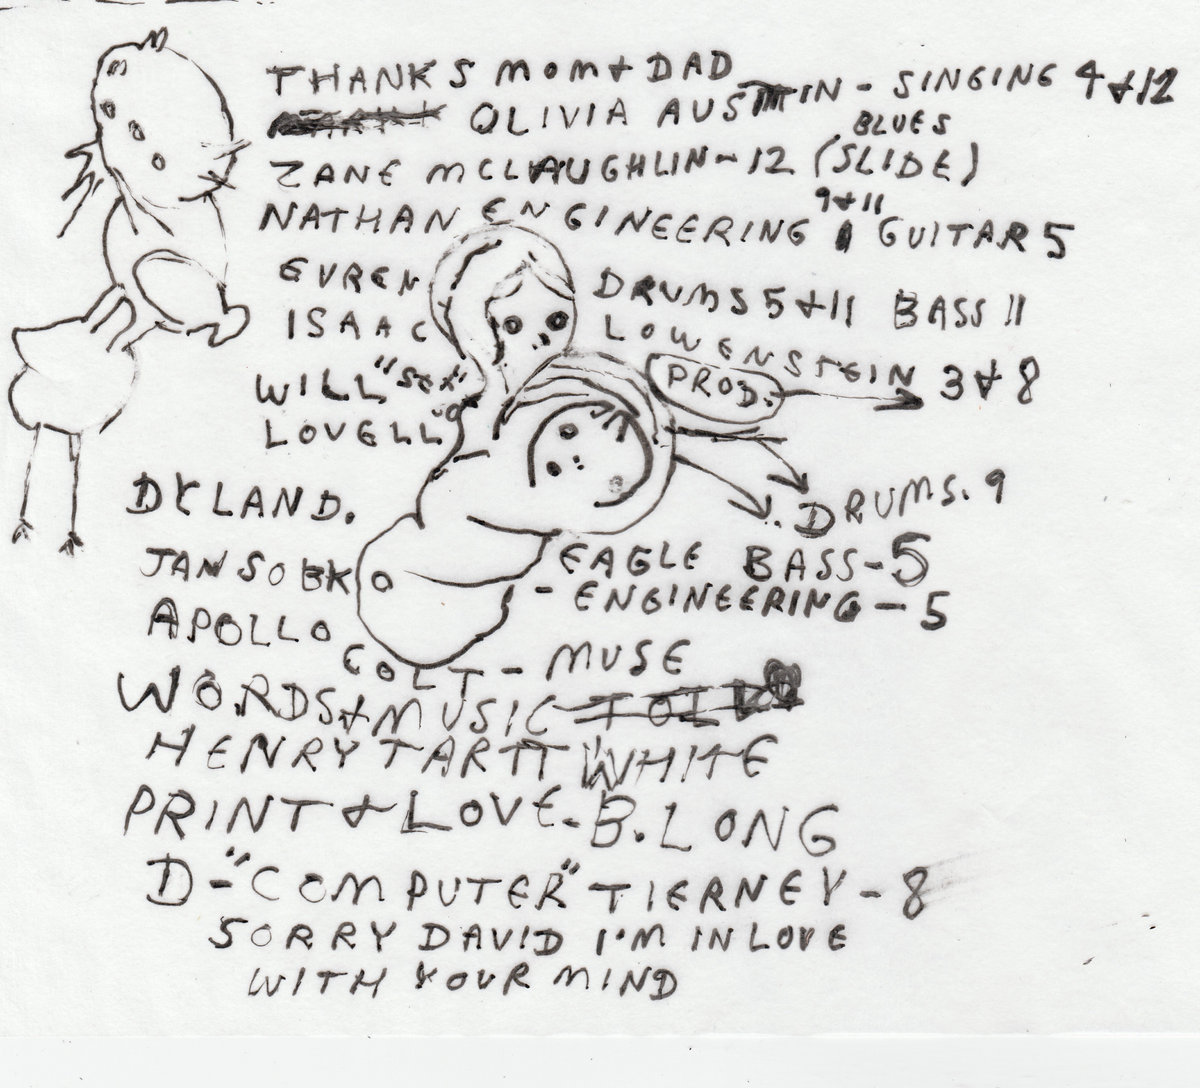 THANKS MOM & DAD
OLIVIA AUSTIN - SINGING 4 & 12
BLUES
ZANE MCLAUGHLIN - 12 (SLIDE)
9 & 11
NATHAN ENGINEERING GUITAR 5
EVREN DRUMS 5 & 11 BASS 11
ISAAC LOWENSTEIN 3 & 8
PROD.
WILL "SEX"
LOVELL
DYLAND. DRUMS. 9
EAGLE BASS - 5
JAN SOBK - ENGINEERING - 5
APOLLO
COLT - MUSE
WORDS & MUSIC
HENRY TARTT WHITE
PRINT & LOVE - B. LONG
D - "COMPUTER" TIERNEY - 8
SORRY DAVID I'M IN LOVE
WITH YOUR MIND